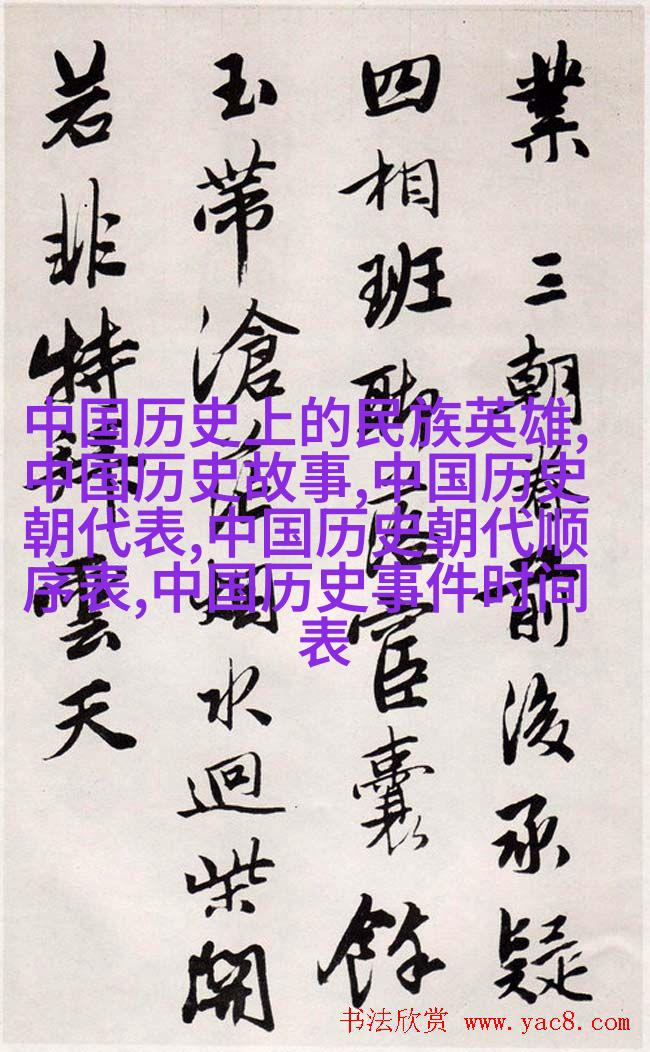 業 三朝前後承疑
四相班宦囊餘
玉帶滄烟水迴柴開
若非特雲天
中国历史上的民族英雄,
中国历史故事,中国历史
朝代表,中国历史朝代顺
序表,中国历史事件时间
表
书法欣赏 www.yac8.com